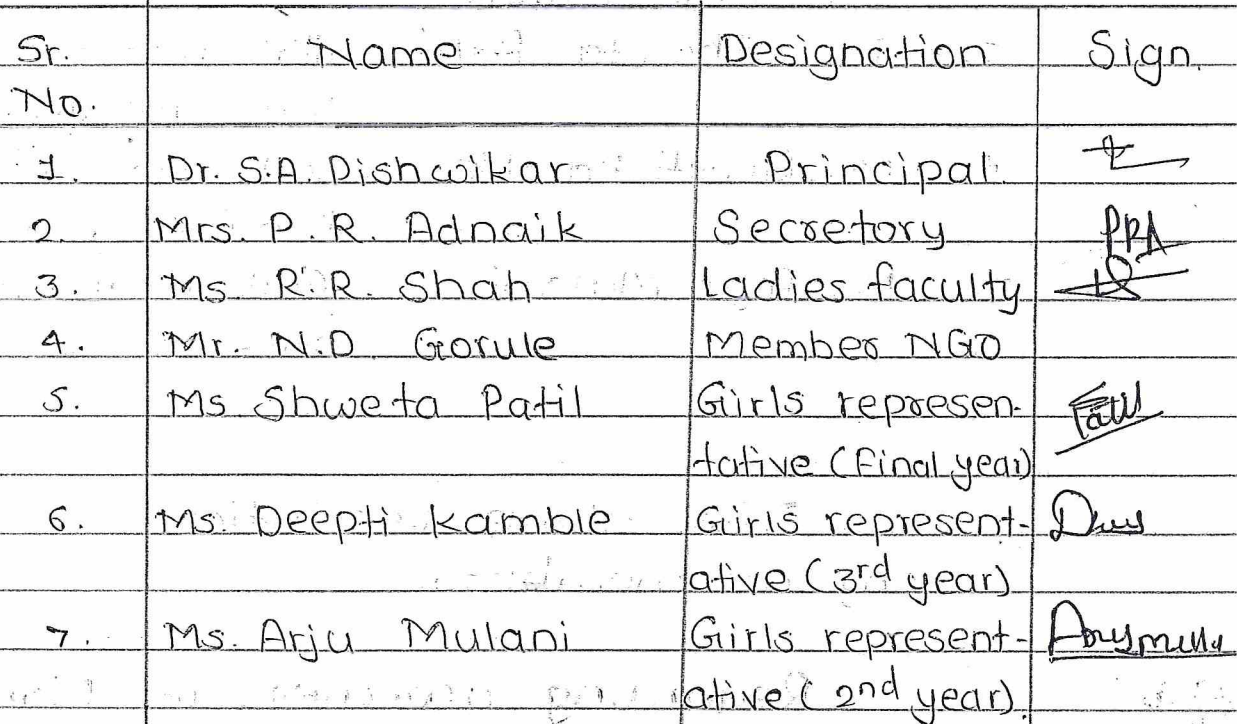 Sr. Name Designation Sign.
No.
1. Dr. S.A. Dishwikar Principal
2. Mrs. P. R. Adnaik Secretory PRA
3. Ms. R.R. Shah Ladies faculty
4. Mr. N.D. Gorule Member NGO
5. Ms Shweta Patil Girls represen-
tative (Final year)
6. Ms. Deepti Kamble Girls represent-
ative (3rd year)
7. Ms. Arju Mulani Girls represent-
ative (2nd year).